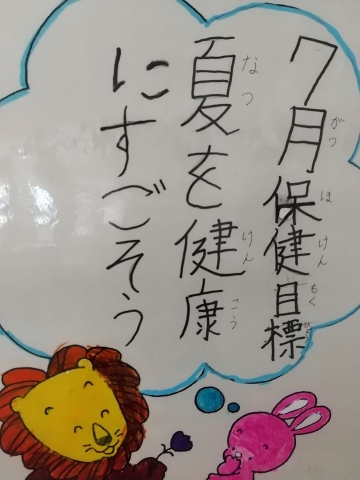 7月保健目標
夏を健康
にすごそう